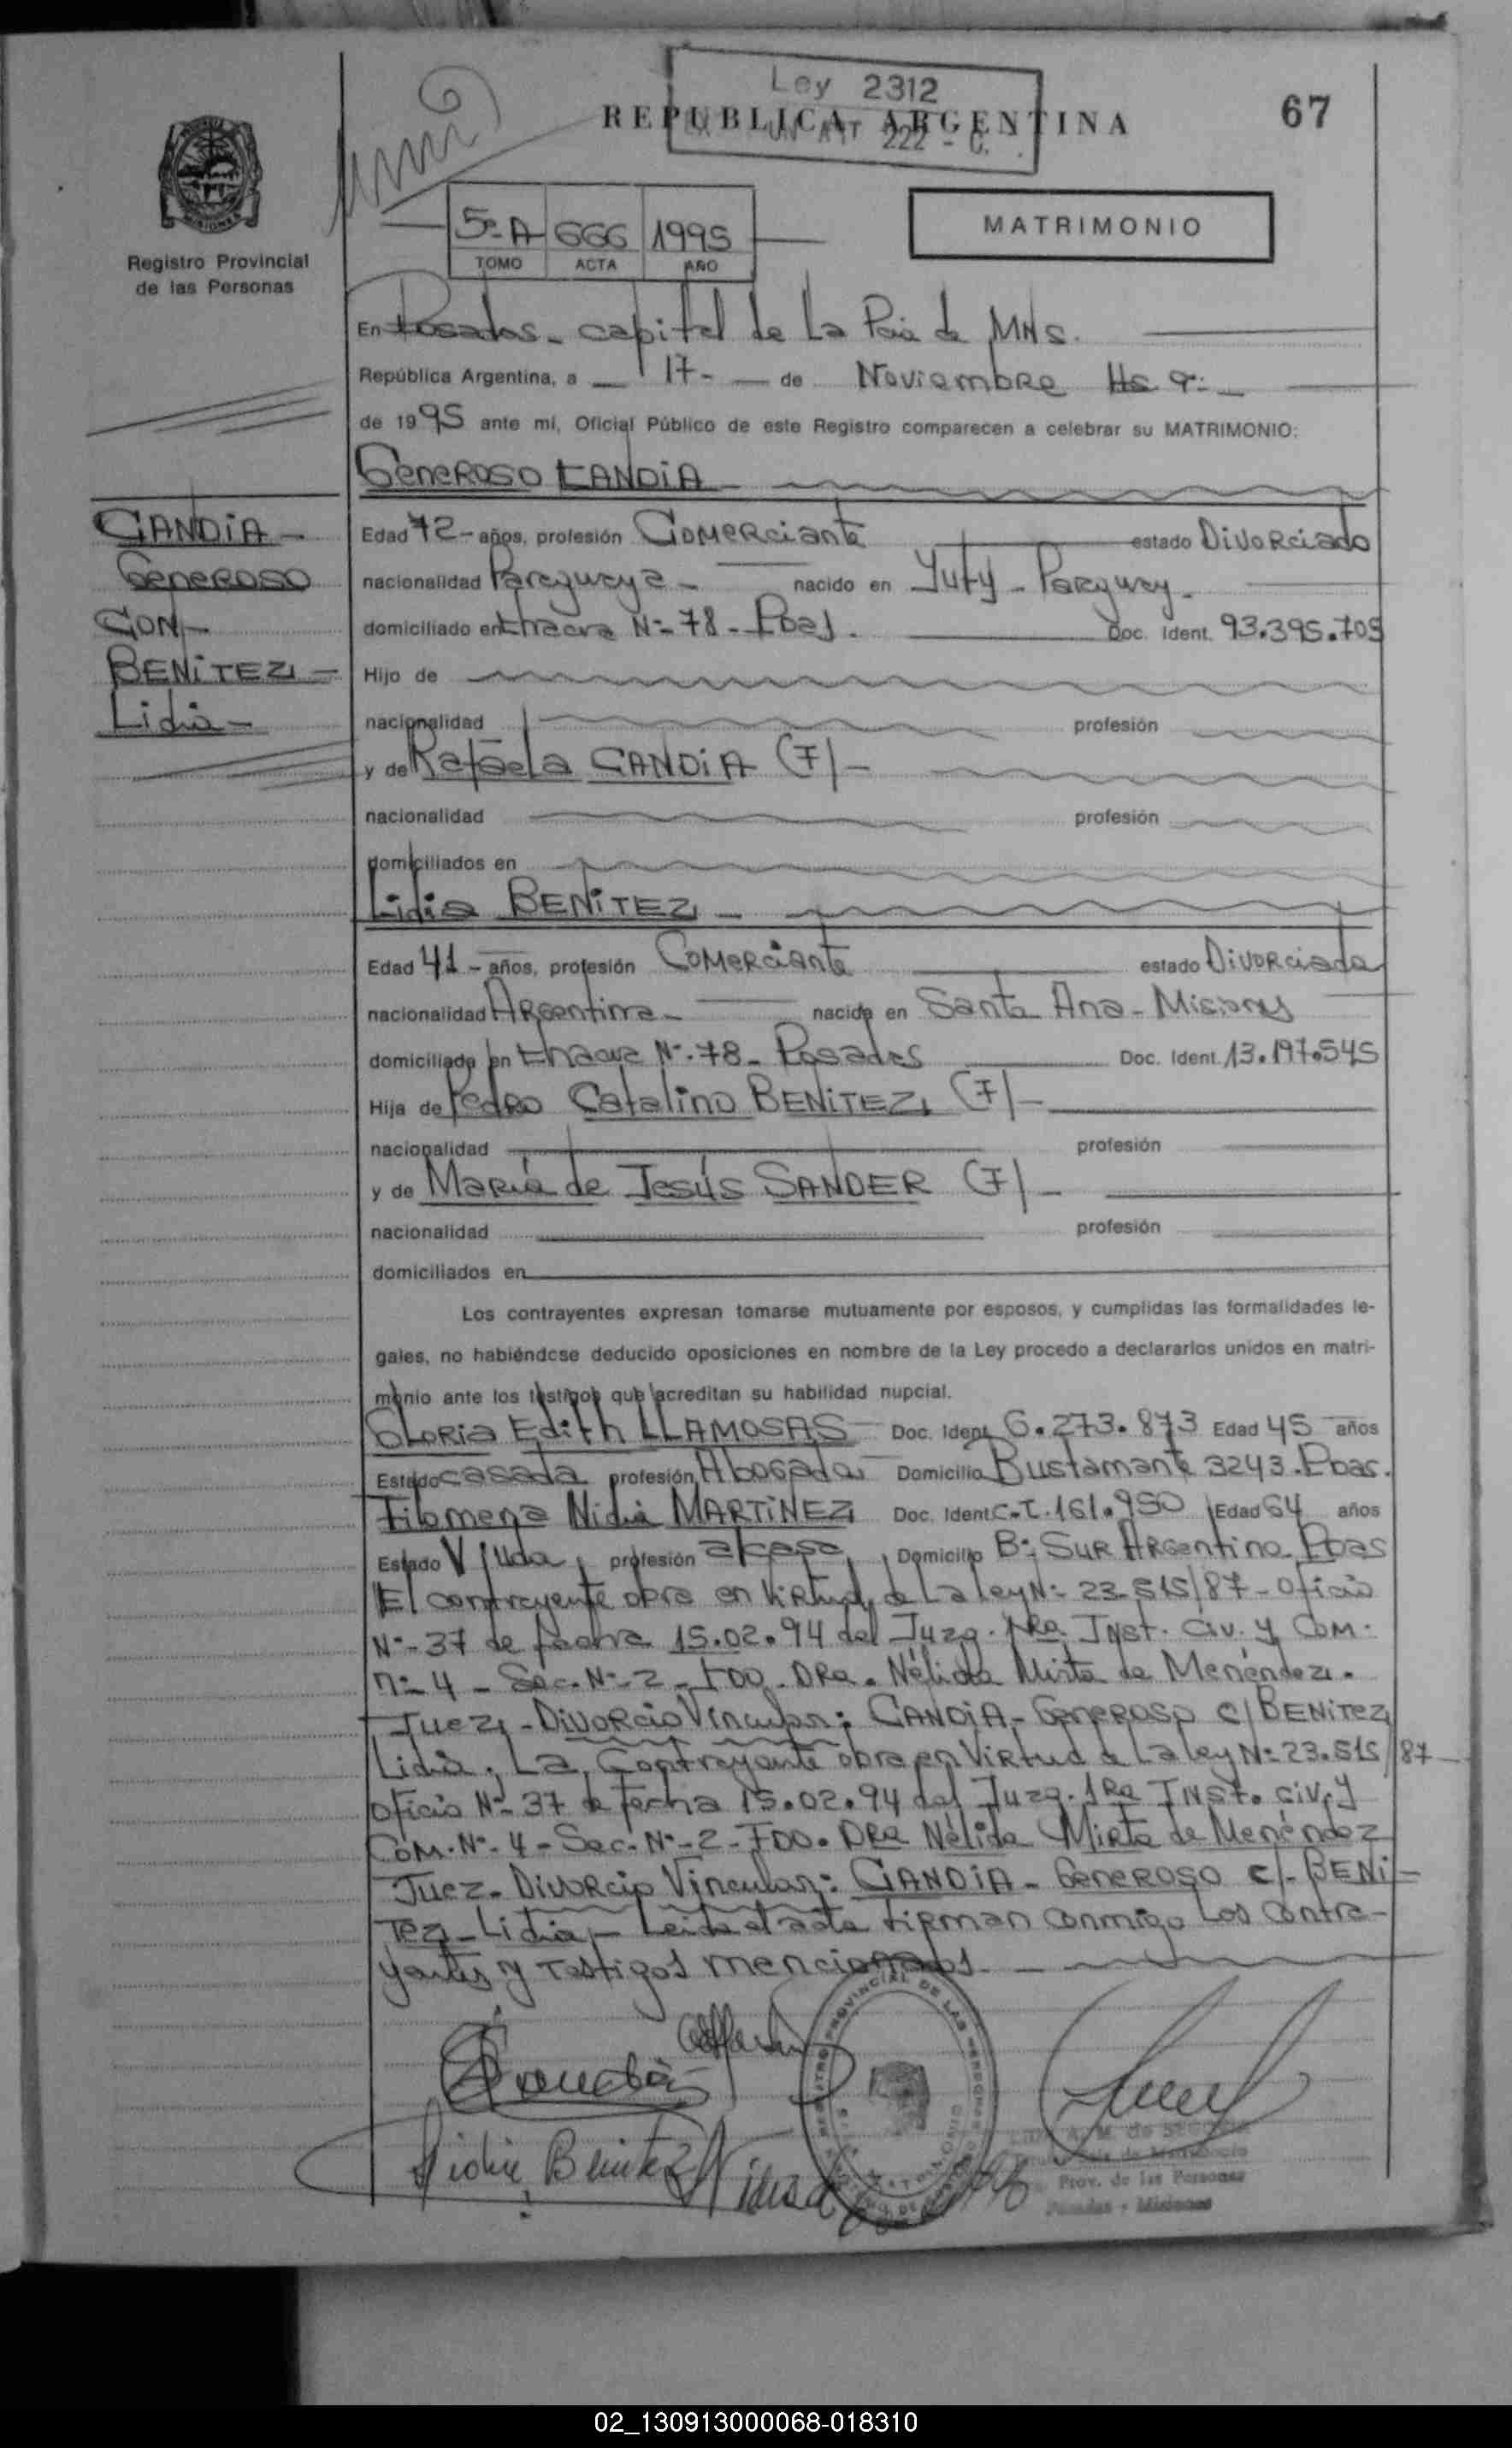 Ley 2312
REPUBLICA ARGENTINA
ART 222 - C.
67
MISIONES
Registro Provincial
de las Personas
5º A 666 1995
TOMO ACTA AÑO
MATRIMONIO
En Posadas - capital de La Pcia de MNS.
República Argentina, a 17 - de Noviembre Hs 9:
de 1995 ante mí, Oficial Público de este Registro comparecen a celebrar su MATRIMONIO:
Generoso CANDIA
CANDIA -
Generoso
CON -
BENITEZ -
Lidia -
Edad 72 - años, profesión Comerciante estado Divorciado
nacionalidad Paraguaya - nacido en Yuty - Paraguay -
domiciliado en Chacra Nº 78 - Pdas. Doc. Ident. 93.395.705
Hijo de
nacionalidad profesión
y de Rafaela CANDIA (F) -
nacionalidad profesión
domiciliados en
Lidia BENITEZ -
Edad 41 - años, profesión Comerciante estado Divorciada
nacionalidad Argentina - nacida en Santa Ana - Misiones
domiciliada en Chacra Nº 78 - Posadas Doc. Ident. 13.197.545
Hija de Pedro Catalino BENITEZ, (F) -
nacionalidad profesión
y de María de Jesús SANDER (F) -
nacionalidad profesión
domiciliados en
Los contrayentes expresan tomarse mutuamente por esposos, y cumplidas las formalidades le-
gales, no habiéndose deducido oposiciones en nombre de la Ley procedo a declararlos unidos en matri-
monio ante los testigos que acreditan su habilidad nupcial.
Gloria Edith LLAMOSAS - Doc. Ident. 6.273.873 Edad 45 años
Estado casada profesión Abogada, Domicilio Bustamante 3243. Pdas.
Filomena Nidia MARTINEZ Doc. Ident C.I. 161.950 Edad 64 años
Estado Viuda, profesión q/casa, Domicilio Bº Sur Argentino. Pdas
El contrayente obra en Virtud de La ley Nº 23.515/87 - Oficio
Nº 37 de fecha 15.02.94 del Juzg. 1Ra Inst. Civ. y Com.
nº 4 - Sec. Nº 2 - FDO. DRa. Nélida Mirta de Menéndez.
Juez - Divorcio Vincular: CANDIA - Generoso c/ BENITEZ
Lidia, La Contrayente obra en Virtud de La ley Nº 23.515/87
Oficio Nº 37 de fecha 15.02.94 del Juzg. 1Ra Inst. Civ. y
Com. Nº 4 - Sec. Nº 2 - FDO. DRa Nélida Mirta de Menéndez
Juez. Divorcio Vincular: CANDIA - Generoso c/- BENI-
TEZ - Lidia, - Leida el acta firman conmigo Los Contra-
yentes y Testigos mencionados.
Lidia Benitez
Prov. de las Personas
Posadas - Misiones
02_130913000068-018310